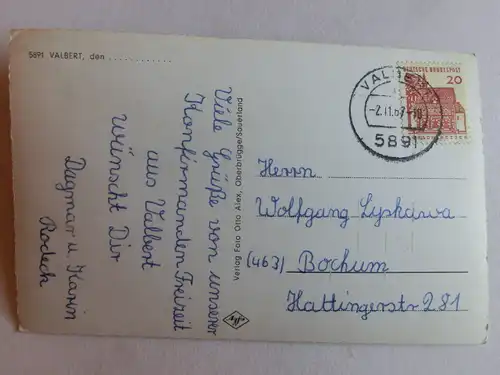 5891 VALBERT, den ............
Viele Grüße von unserer
Konfirmanden Freizeit
aus Valbert
wünscht Dir
Dagmar u. Karin
Rodech
Verlag Foto Otto Alex, Oberbrügge/Sauerland
DEUTSCHE BUNDESPOST
20
VALBERT
-2.11.67-18
5891
Herrn
Wolfgang Lyskawa
(463) Bochum
Hattingerstr 281